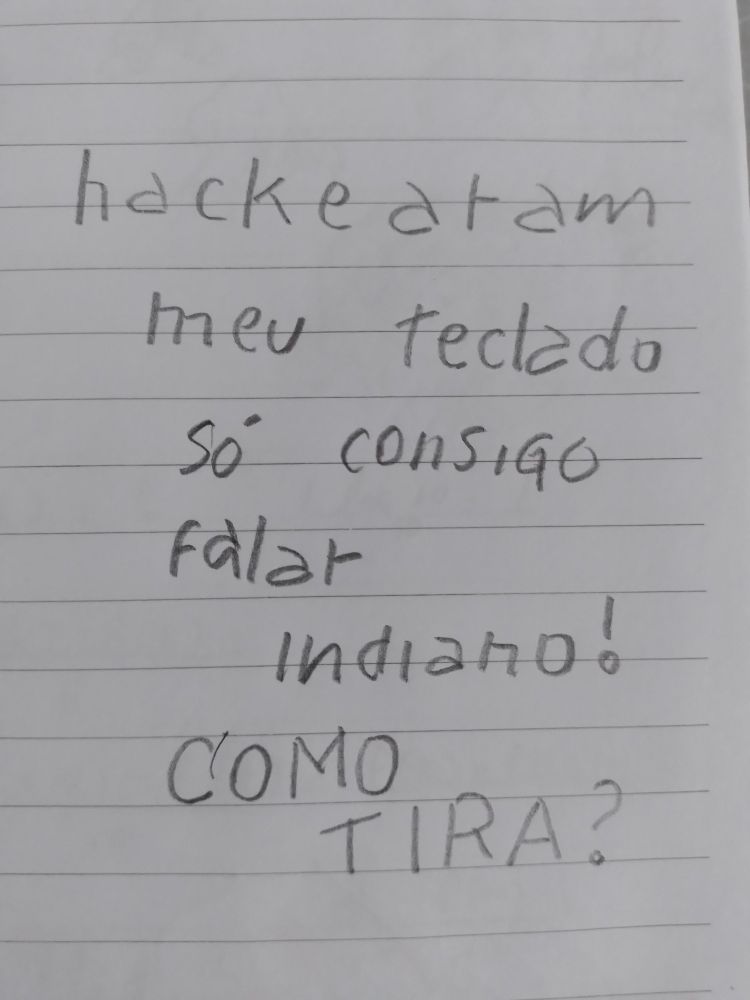 hackearam
meu teclado
só consigo
falar
indiano!
COMO
TIRA?